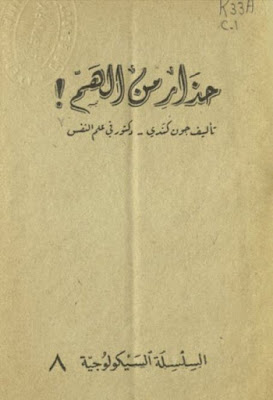 K33A
C.1
حذار من الهم !
تأليف جون كندي - دكتور في علم النفس
السلسلة السيكولوجية ٨